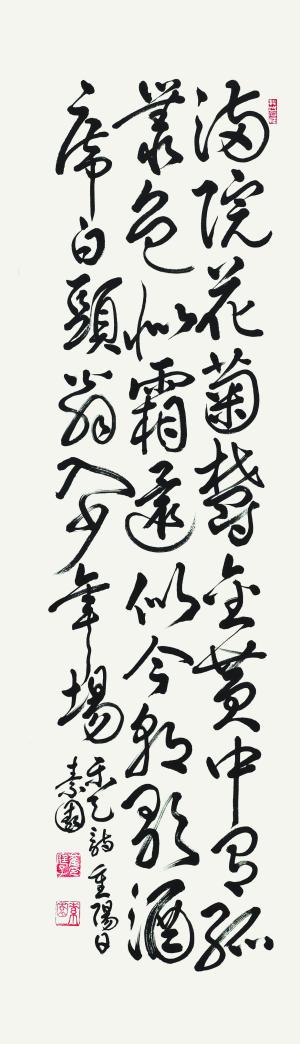 滿院花菊鬱金黃中有孤
叢色似霜還似今朝歌酒
席白頭翁入少年場
樂天詩 重陽日
素園